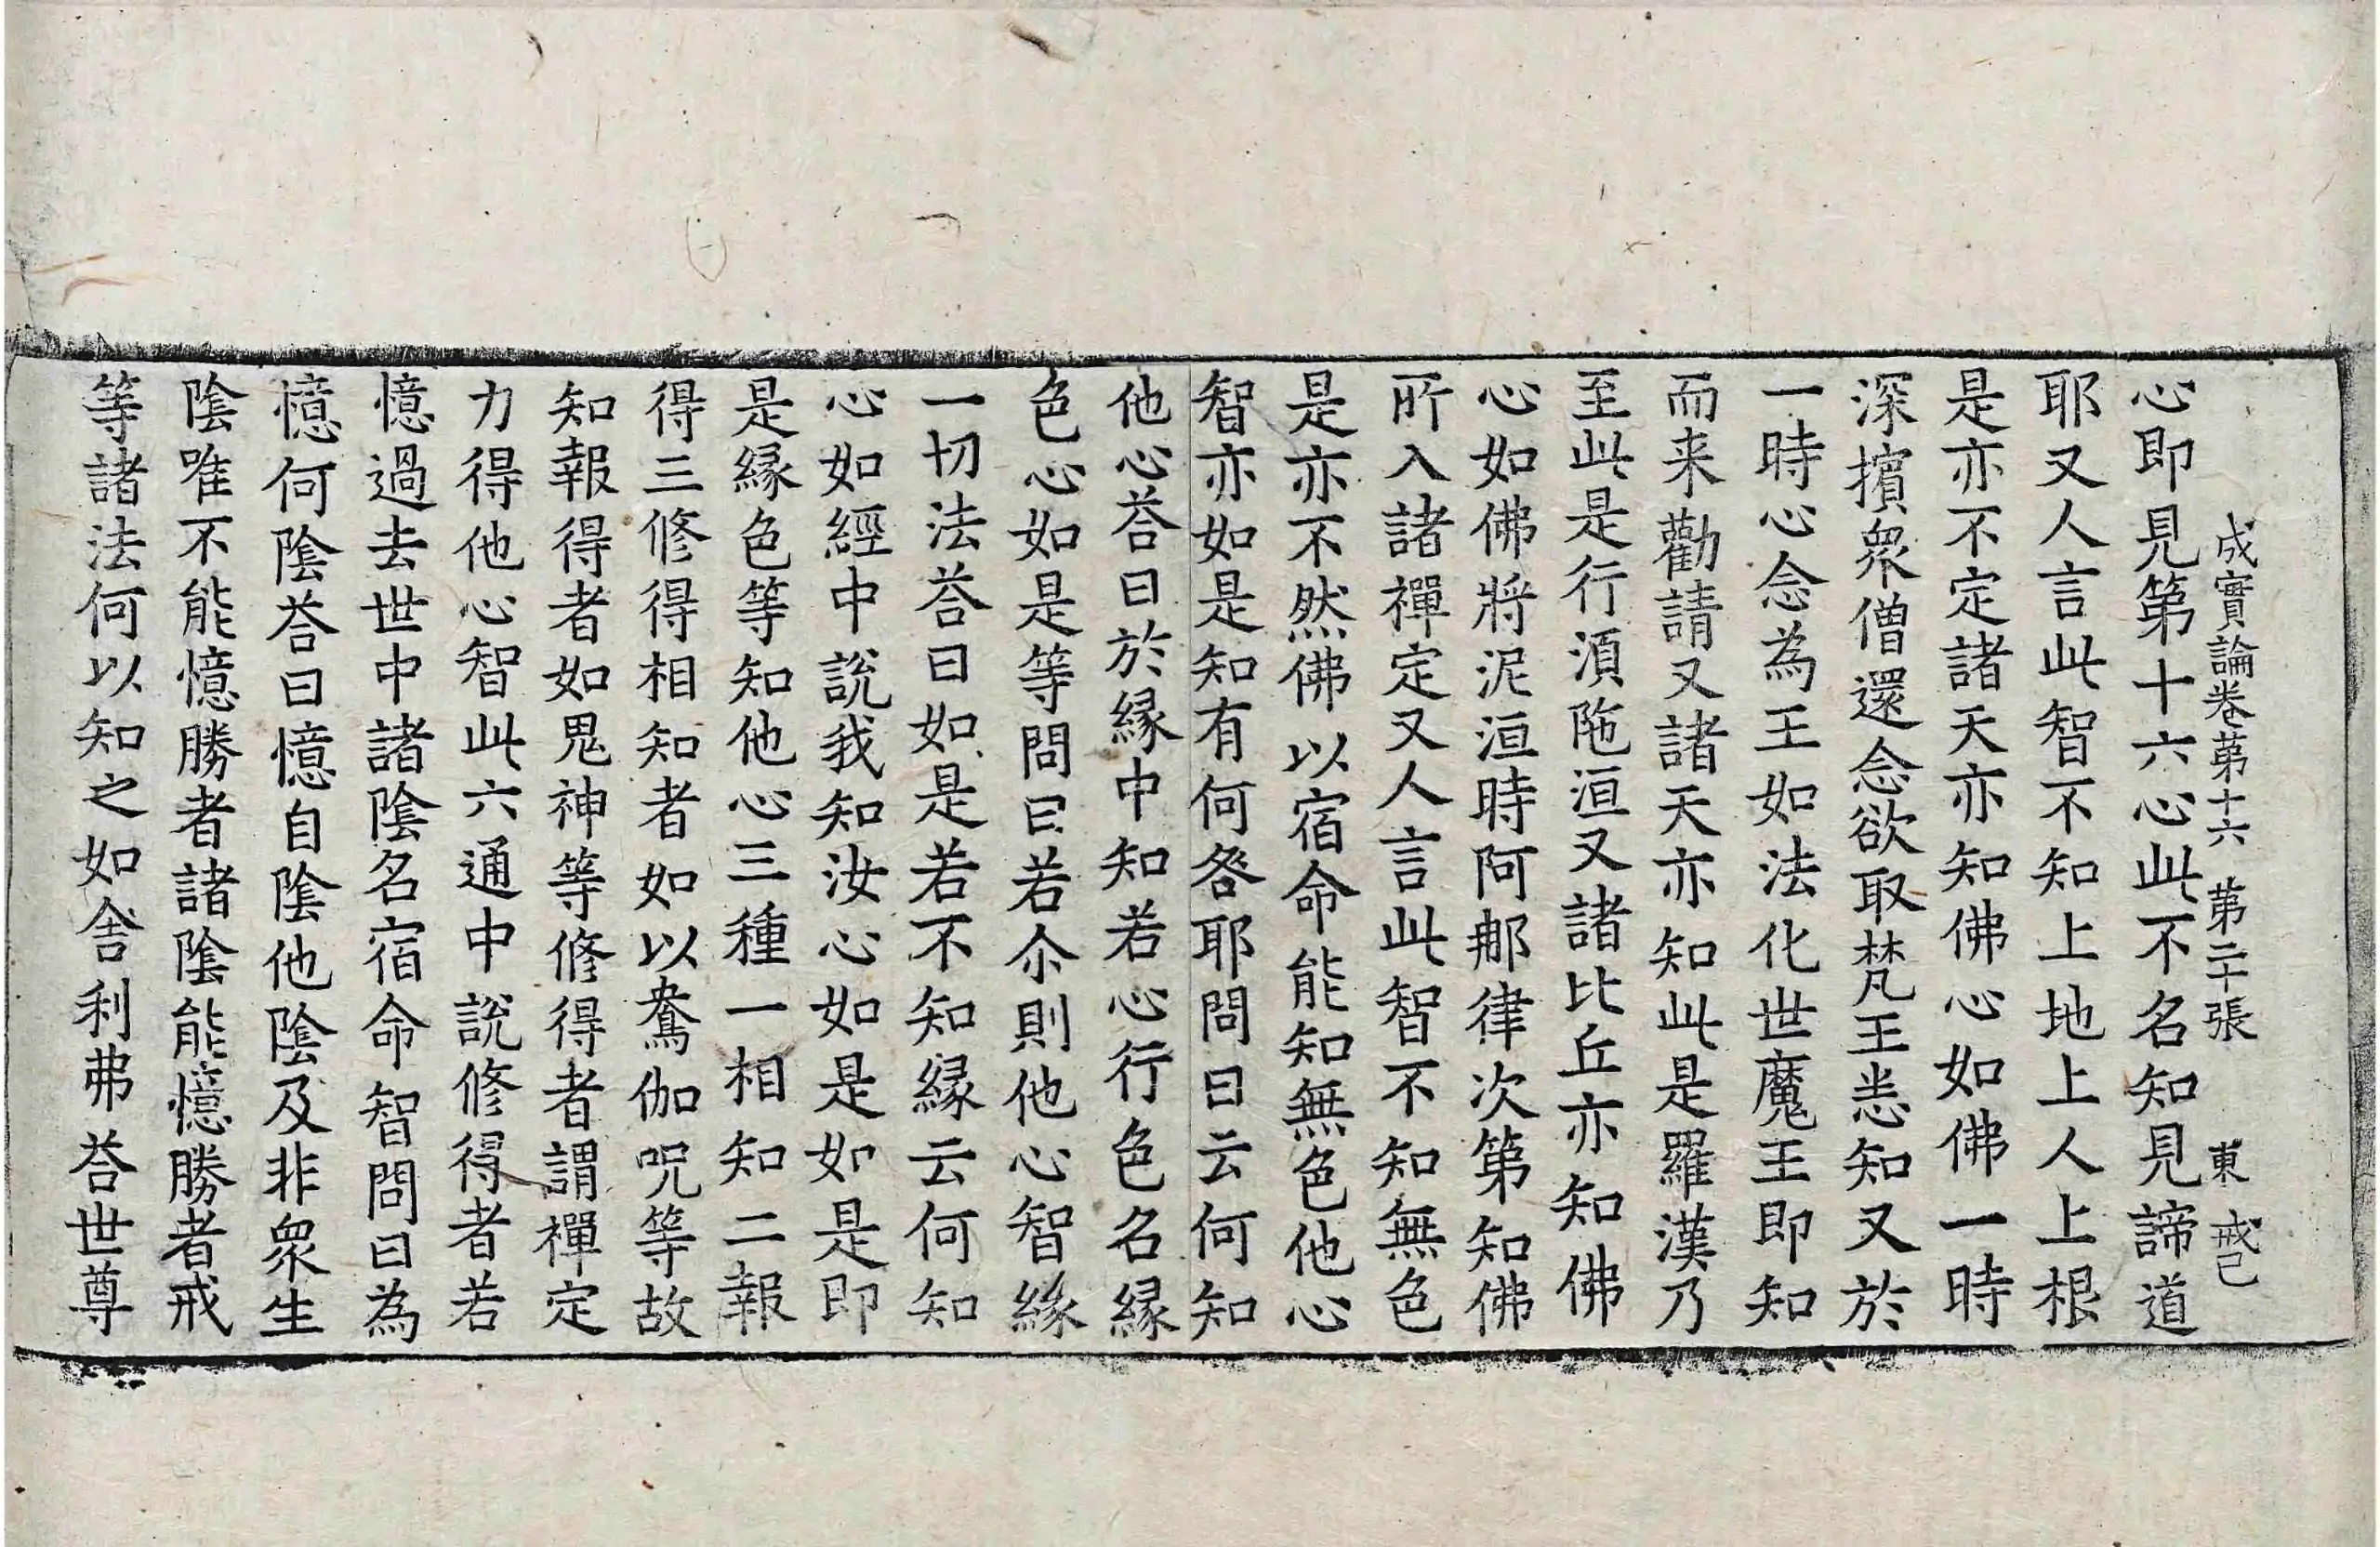 成實論卷第十六 第二十張 東 戒己
心即見第十六心此不名知見諦道
耶又人言此智不知上地上人上根
是亦不定諸天亦知佛心如佛一時
深擯衆僧還念欲取梵王恚知又於
一時心念為王如法化世魔王即知
而来勸請又諸天亦知此是羅漢乃
至此是行湏陁洹又諸比丘亦知佛
心如佛將泥洹時阿那律次第知佛
所入諸禪定又人言此智不知無色
是亦不然佛以宿命能知無色他心
智亦如是知有何咎耶問曰云何知
他心荅曰於縁中知若心行色名縁
色心如是等問曰若尒則他心智緣
一切法荅曰如是若不知縁云何知
心如經中說我知汝心如是如是即
是縁色等知他心三種一相知二報
得三修得相知者如以鴦伽呪等故
知報得者如鬼神等修得者謂禪定
力得他心智此六通中說修得者若
憶過去世中諸陰名宿命智問曰為
憶何陰荅曰憶自陰他陰及非衆生
陰唯不能憶勝者諸陰能憶勝者戒
等諸法何以知之如舍利弗荅世尊